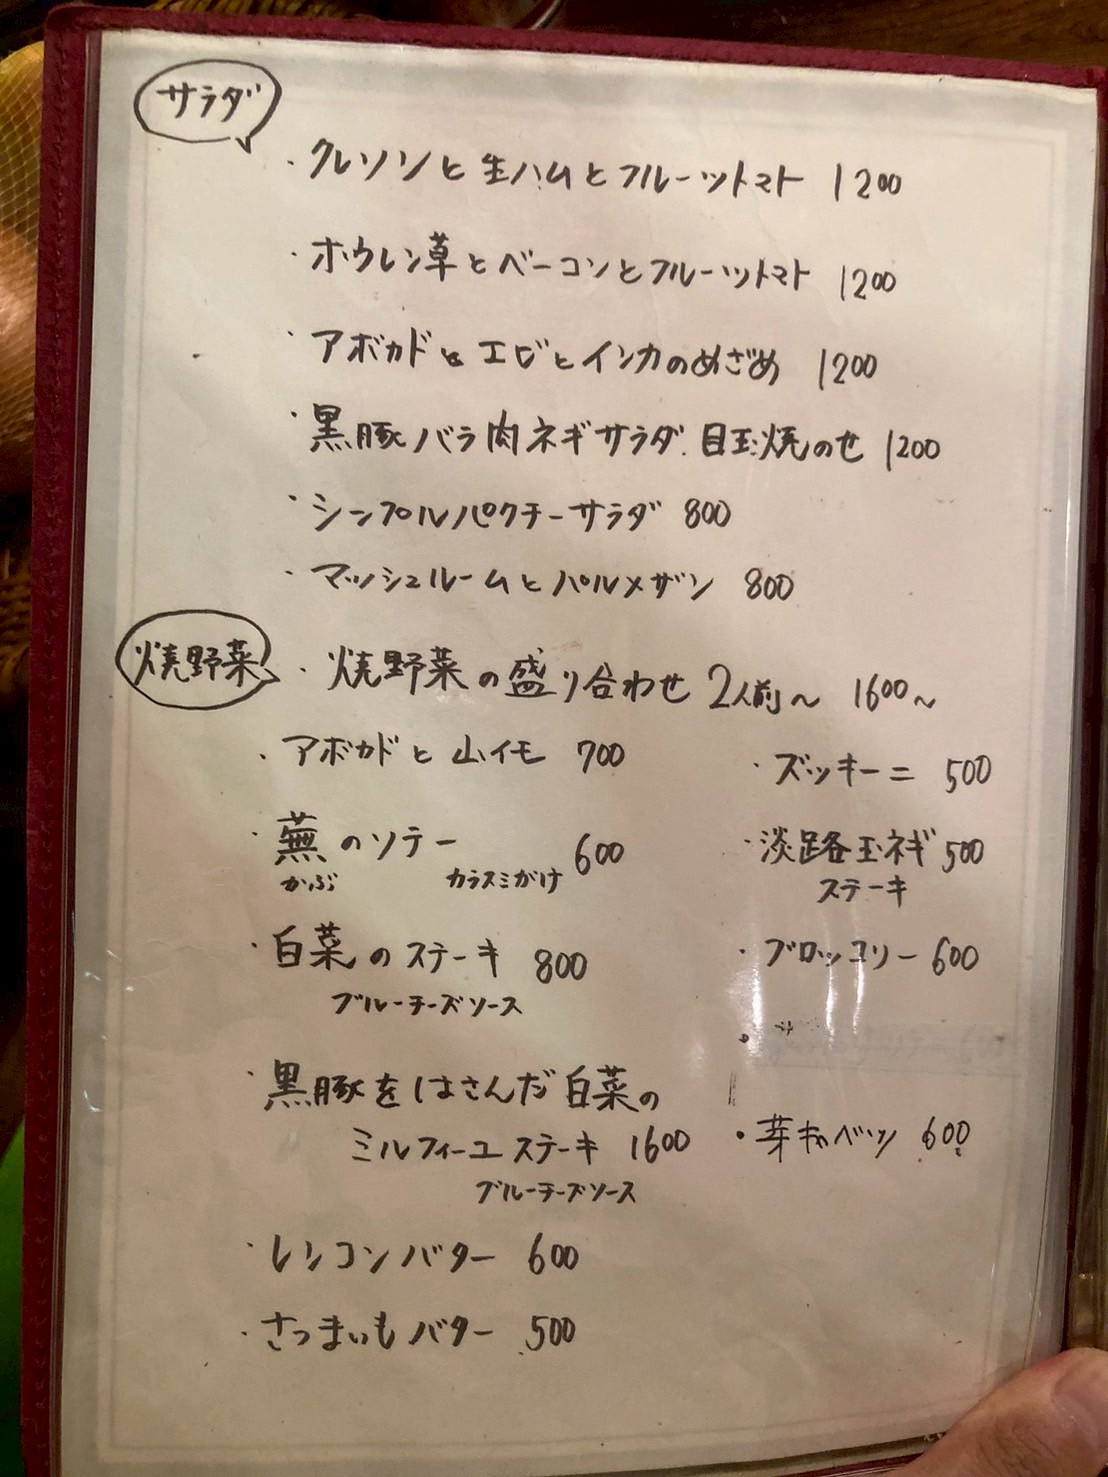 サラダ
・クレソンと生ハムとフルーツトマト 1200
・ホウレン草とベーコンとフルーツトマト 1200
・アボカドとエビとインカのめざめ 1200
・黒豚バラ肉ネギサラダ.目玉焼のせ 1200
・シンプルパクチーサラダ 800
・マッシュルームとパルメザン 800
焼野菜
・焼野菜の盛り合わせ 2人前〜 1600〜
・アボカドと山イモ 700
・蕪のソテー 600
かぶ カラスミがけ
・白菜のステーキ 800
ブルーチーズソース
・黒豚をはさんだ白菜の
ミルフィーユステーキ 1600
ブルーチーズソース
・レンコンバター 600
・さつまいもバター 500
・ズッキーニ 500
・淡路玉ネギ 500
ステーキ
・ブロッコリー 600
・芽キャベツ 600